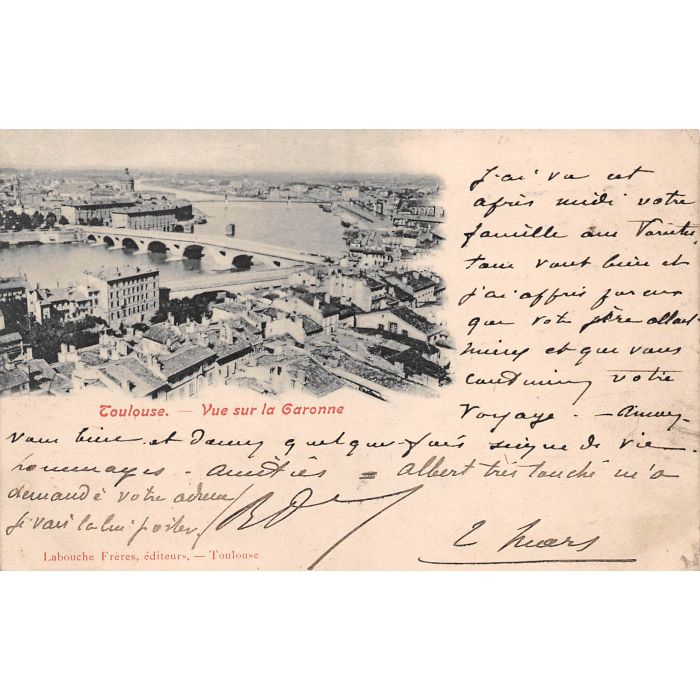 J'ai vu cet
après midi votre
famille aux Variétés
tous vont bien et
j'ai appris par eux
que votre père allait
mieux et que vous
continuiez votre
voyage. — Amusez
vous bien et donnez quelque fois signe de vie.
hommages - amitiés = Albert très touché m'a
demandé votre adresse
je vais la lui porter
2 mars
Toulouse. — Vue sur la Garonne
Labouche Frères, éditeurs. — Toulouse